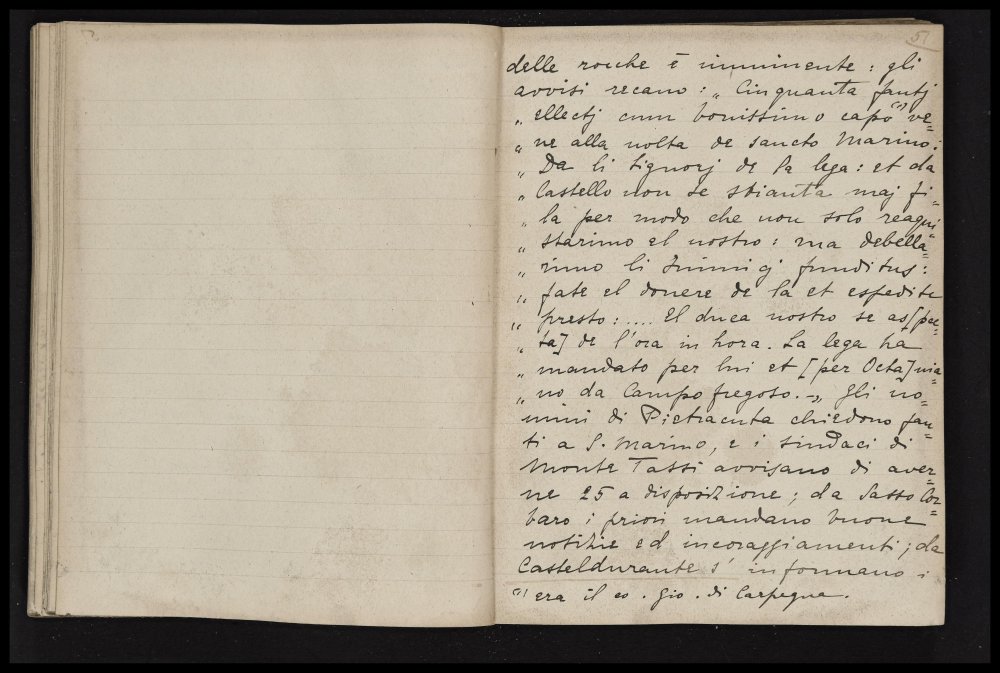 51
delle rocche è imminente : gli
avvisi recano : „ Cinquanta fantj
„ ellectj cum bonissimo capo (1) ve=
„ ne alla volta de sancto Marino:
„ Da li signorj de la lega : et da
„ Castello non se schianta maj fi=
„ la per modo che non solo reaqui=
„ starimo el nostro : ma debella=
„ rimo li Inimicj funditus :
„ fate el dovere de la et espedite
„ presto : .... El duca nostro se as[pec=
„ ta] de l'ora in hora. La lega ha
„ mandato per lui et [per Octa]via=
„ no da Campofregoso. -„ Gli uo=
mini di Pietracuta chiedono fan=
ti a S. Marino, e i sindaci di
Monte Tassi avvisano di aver=
ne 25 a disposizione ; da Sasso Cor=
baro i priori mandano buone
notizie ed incoraggiamenti ; da
Casteldurante s' informano i
(1) era il co. Gio. di Carpegna.